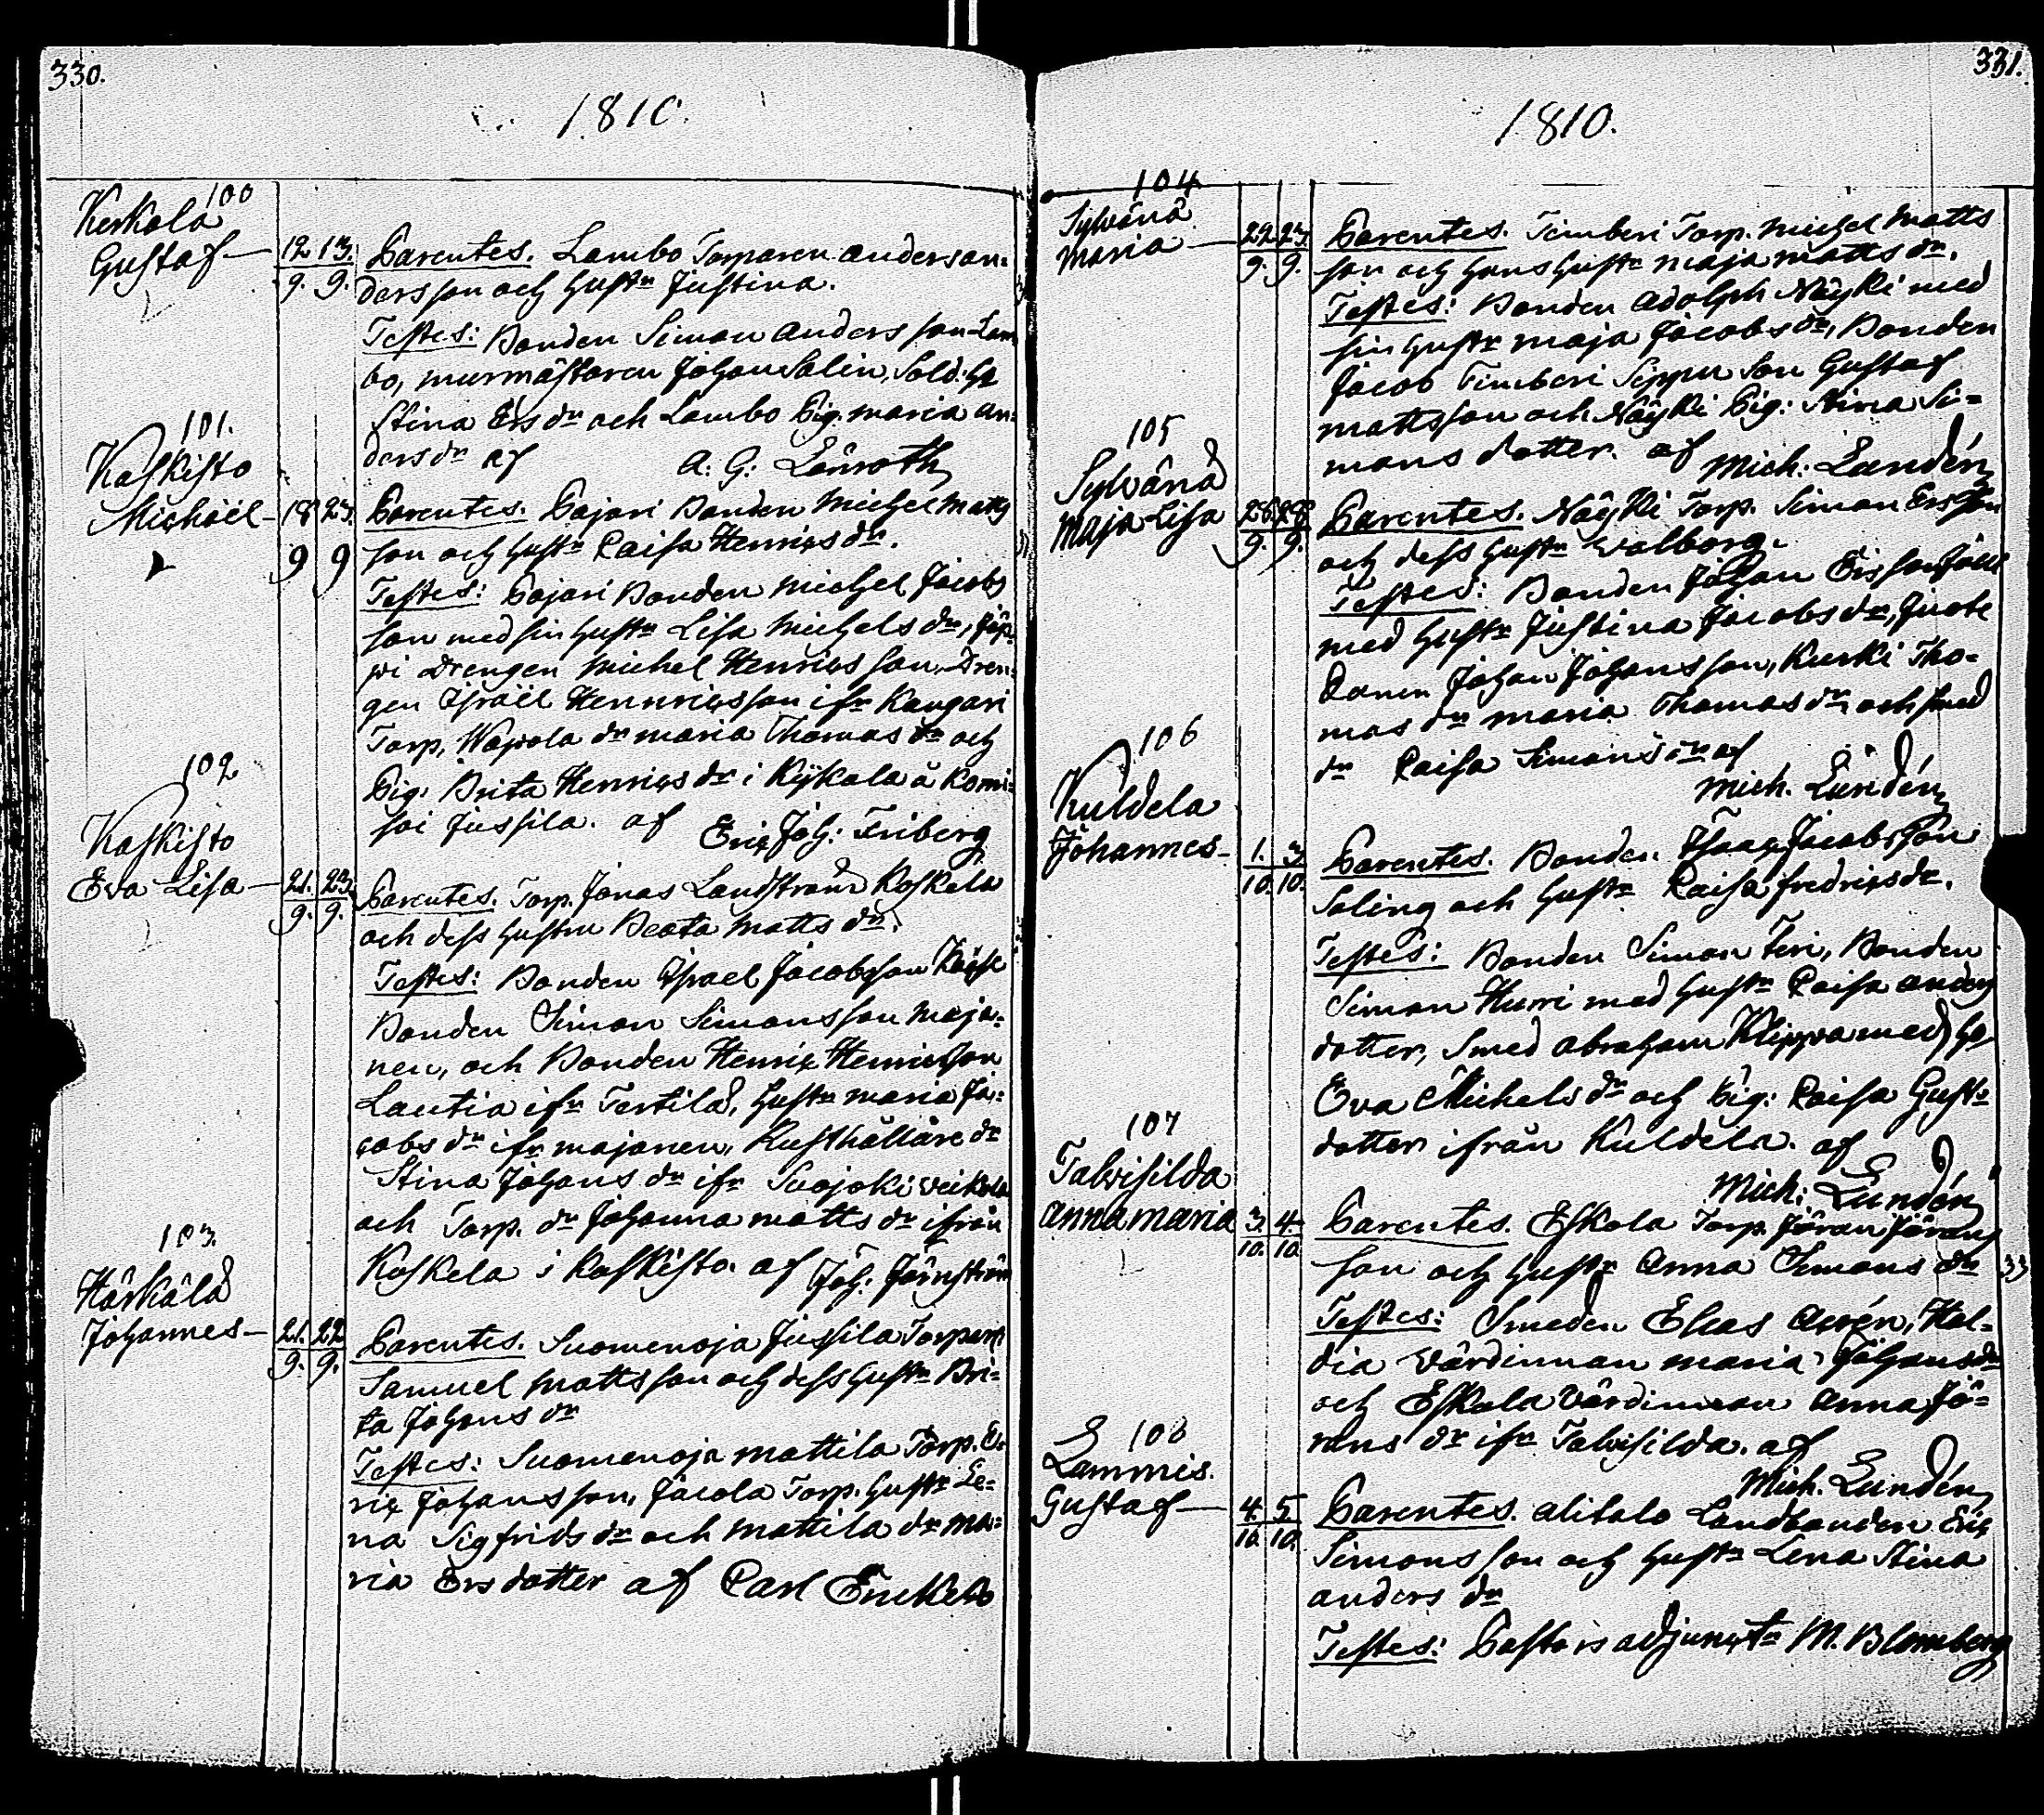 330.
1810.
100
Kerkola
Gustaf — 12 13.
9. 9.
Parentes. Lambo Torparen Anders An=
ders son och hustr Justina.
Testes: Bonden Simon Anders son Lam
bo, murmästaren Johan Salin, Sold. h
Stina Ers dr och Lambo Pig. Maria An=
ders dr af A. G. Lönroth
101.
Koskisto
Michaël — 18 23.
9 9
Parentes. Pajari Bonden Michel Matts
son och hustr Caisa Henrics dr.
Testes: Pajari Bonden Michel Jacobs
son med sin hustr Lisa Michels dr,
pi Drengen Michel Henrics son, Dren=
gen Israël Hennricsson ifr Kangari
Torp, Wapola dr Maria Thomas dr och
Pig. Brita Henrics dr i Kÿkala å
Jussila. af Eric Joh: Friberg
102
Koskisto
Eva Lisa — 21. 23.
9. 9.
Parentes. Torp. Jonas Landström Koskela
och dess hustru Beata Matts dr.
Testes: Bonden Israel Jacobsson
Bonden Simon Simons son Maja=
nen, och Bonden Henric Henricsson
Lautia ifr Tertilä, hustr Maria Ja=
cobs dr ifr Majanen, Rusthållare dr
Stina Johans dr ifr Suojoki
och Torp. dr Johanna Matts dr ifrån
Koskela i Koskisto. af Joh. Järnström
103.
Härkälä
Johannes — 21. 22
9. 9.
Parentes. Suomenoja Jussila Torparen
Samuel Matts son och dess hustr Bri=
ta Johans dr
Testes: Suomenoja Mattila Torp. E=
ric Johans son, Jacola Torp. hustr Le=
na Sigfrids dr och Mattila dr Ma=
ria Ers dotter af Carl Enckell
331.
1810.
104
Sylvänä
Maria — 22 23.
9. 9.
Parentes. Timberi Torp. Michel Matts
son och hans hustr Maja Matts dr.
Testes: Bonden Adolph Näyki med
sin hustr Maja Jacobs dr, Bonden
Jacob Timberi Seppu Son Gustaf
Mattsson och Näyki Pig: Stina Si=
mons dotter. af Mich: Lundén
105
Sylvänä
Maja Lisa 26. 28.
9. 9.
Parentes. Näyki Torp. Simon Ersson
och dess hustr Walborg.
Testes: Bonden Johan Ers son
med hustr Justina Jacobs dr,
Johan Johans son, Kurki Tho=
mas dr Maria Thomas dr och Smed
dr Caisa Simons dr af
Mich. Lundén
106
Kuldela
Johannes — 1. 3
10. 10.
Parentes. Bonden Isaac Jacobsson
Soling och hustr Caisa Fredrics dr.
Testes: Bonden Simon Teri, Bonden
Simon Hurri med hustr Caisa Anders
dotter, Smed Abraham Klippa med h
Eva Michels dr och Pig: Caisa Gust
dotter ifrån Kuldela. af
Mich: Lundén
107
Talvisilda
Anna Maria 3. 4
10. 10.
Parentes. Eskola Torp. Jöran Jörans
son och hustr Anna Simons dr
Testes: Smeden Elias Hal=
dia Värdinnan Maria Johans dr
och Eskola Värdinnan Anna Jö=
rans dr ifr Talvisilda. af
Mich. Lundén
108
Lammis.
Gustaf — 4. 5
10. 10.
Parentes. Alitalo Landbonden Eric
Simons son och hustr Lena Stina
Anders dr
Testes: Pastors adjuncten M. Blomberg
33